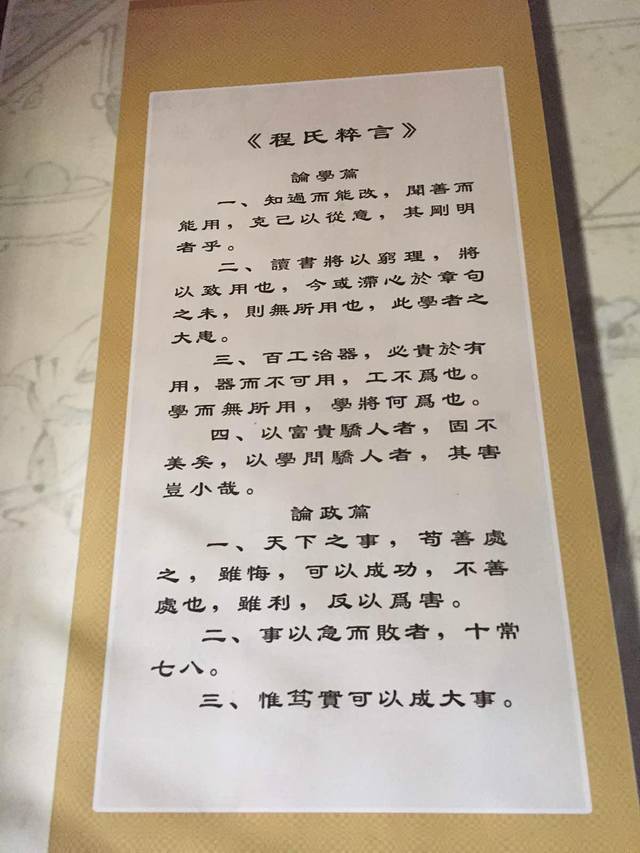 《程氏粹言》
論學篇
一、知過而能改，聞善而
能用，克己以從意，其剛明
者乎。
二、讀書將以窮理，將
以致用也，今或滯心於章句
之末，則無所用也，此學者之
大患。
三、百工治器，必貴於有
用，器而不可用，工不爲也。
學而無所用，學將何爲也。
四、以富貴驕人者，固不
美矣，以學問驕人者，其害
豈小哉。
論政篇
一、天下之事，苟善處
之，雖悔，可以成功，不善
處也，雖利，反以爲害。
二、事以急而敗者，十常
七八。
三、惟笃實可以成大事。